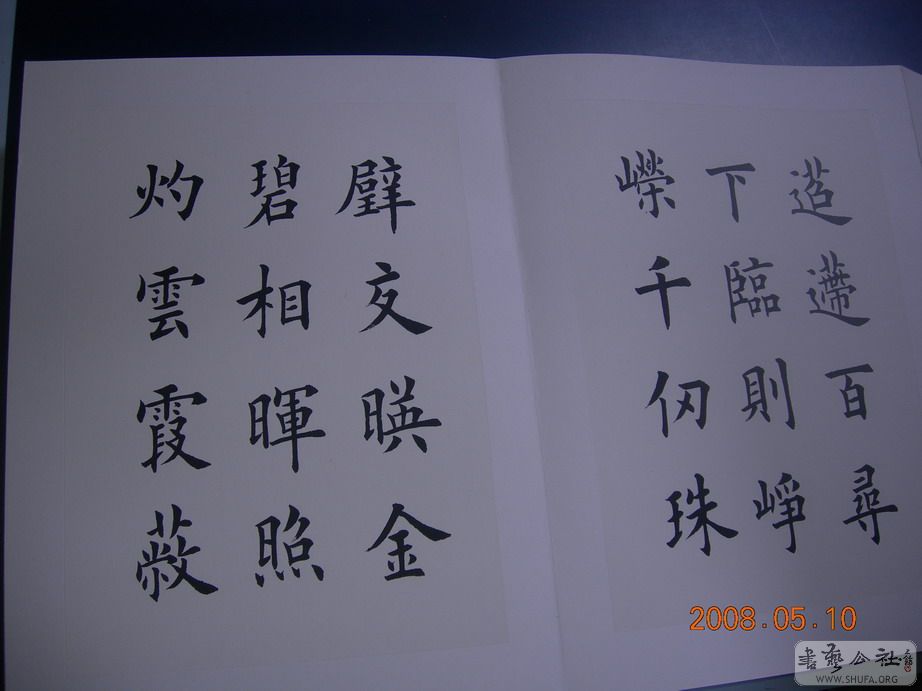 迢遰百尋
下臨則崢
嶸千仞珠
璧交暎金
碧相暉照
灼雲霞蔽
2008.05.10
書藝公社
WWW.SHUFA.ORG